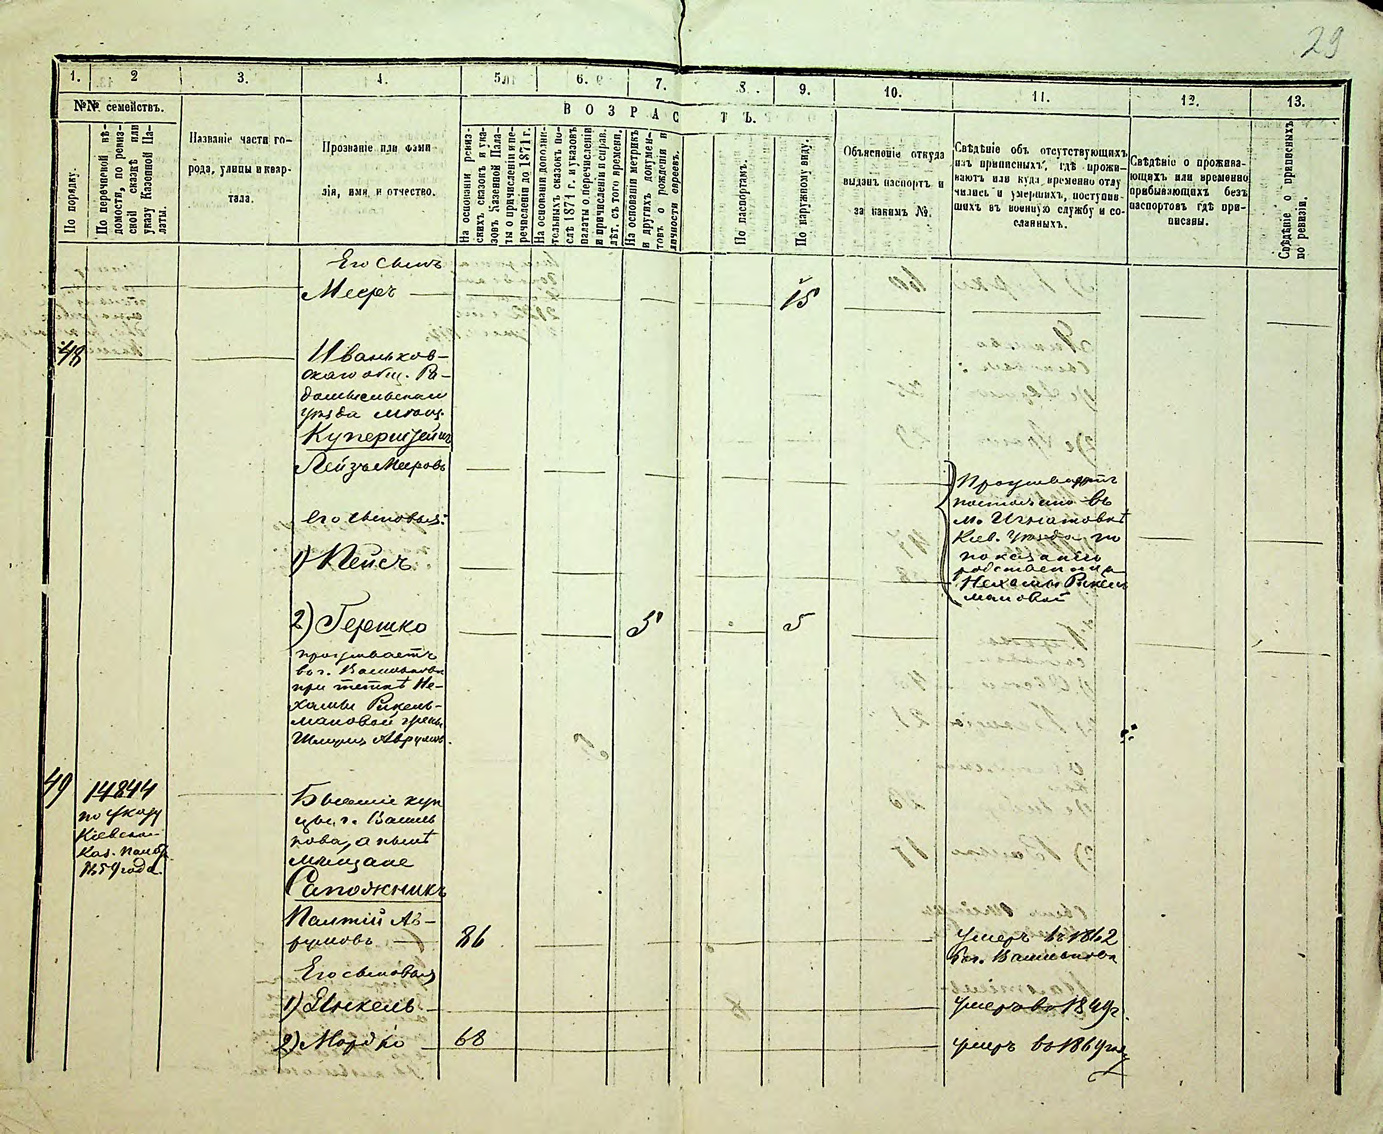 29
1. 2 3. 4. 5. 6. 7. 8. 9. 10. 11. 12. 13.
№№ семействъ.
По порядку.
По перечневой вѣ-
домости, по ревиз-
ской сказкѣ или
указу Казенной Па-
латы.
Названіе части го-
рода, улицы и квар-
тала.
Прозваніе или фами-
лія, имя и отчество.
ВОЗРАСТЪ.
На основаніи ревиз-
скихъ сказокъ и ука-
зовъ Казенной Пала-
ты о причисленіи и пе-
речисленіи до 1871 г.
На основаніи дополни-
тельныхъ сказокъ по-
слѣ 1871 г. и указовъ
палаты о перечисленіи
и причисленіи и справ.
лѣт. съ того времени.
На основаніи метрикъ
и другихъ докумен-
товъ о рожденіи и
личности евреевъ.
По паспортамъ.
По наружному виду.
Объясненіе откуда
выданъ паспортъ и
за какимъ №.
Свѣдѣніе объ отсутствующихъ
изъ приписныхъ, гдѣ прожи-
ваютъ или куда временно отлу-
чились и умершихъ, поступив-
шихъ въ военную службу и со-
сланныхъ.
Свѣдѣніе о прожива-
ющихъ или временно
прибывающихъ безъ
паспортовъ гдѣ при-
писаны.
Свѣдѣніе о приписныхъ
по ревизіи.
Его сынъ
Мееръ 15
48 Иваньков-
скаго общ. Ра-
домысльскаго
уѣзда мѣщ.
Куперштейнъ
Лейзъ Мееровъ
Его сыновья:
1) Пейсъ
Проживаетъ
постоянно въ
м. Игнатовкѣ
Кіев. уѣзда по
показанію
родственницы
Нехамы Рикель
мановой
2) Гершко 5 5
проживаетъ
въ г. Васильковѣ
при теткѣ Не-
хамы Рикель-
мановой
49 14844
по указу
Кіевской
Каз. Палаты
1859 года.
Бывшіе куп
цы, г. Василь
кова, а нынѣ
мѣщане
Сапожникъ
Палтій Аб-
румовъ 86 умеръ въ 1862
въ г. Васильковѣ
Его сыновья
1) Янкель умеръ въ 1849 г.
2) Мордко 68 умеръ въ 1869 году